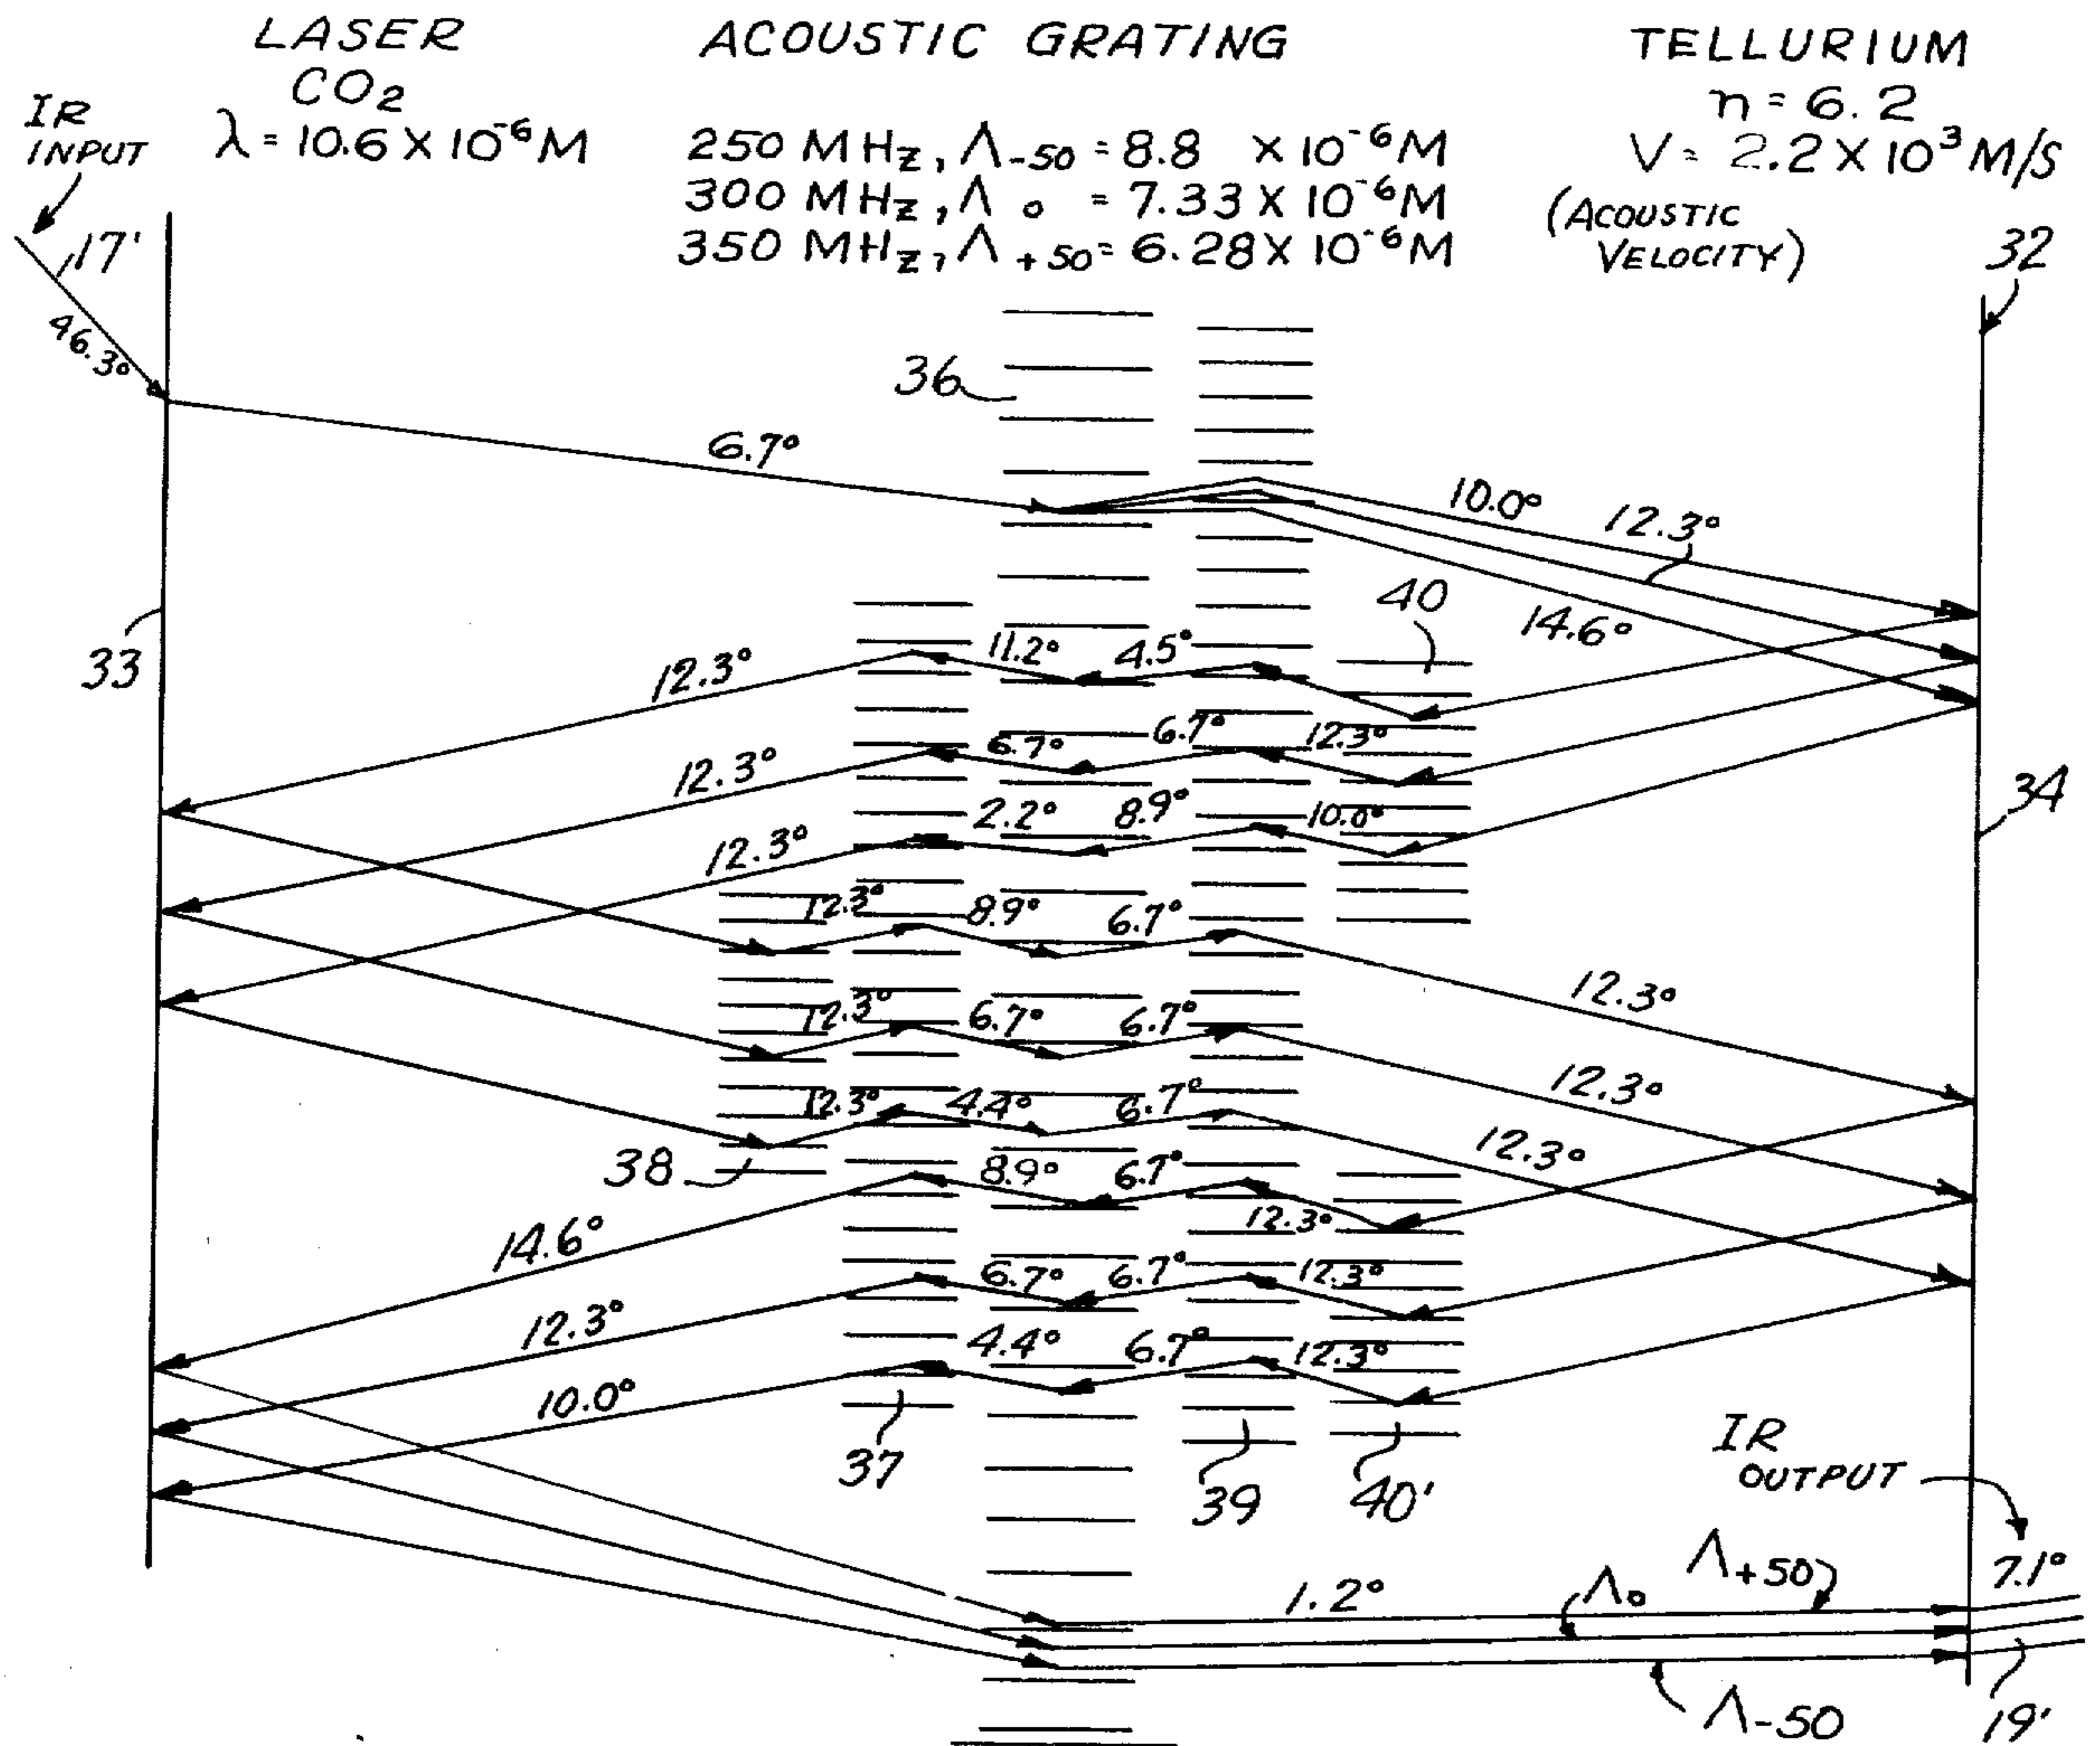 LASER
CO2
λ = 10.6 X 10-6 M
IR
INPUT
17'
46.3°
ACOUSTIC GRATING
250 MHz, Λ-50 = 8.8 X 10-6 M
300 MHz, Λ0 = 7.33 X 10-6 M
350 MHz, Λ+50 = 6.28 X 10-6 M
TELLURIUM
n = 6.2
V = 2.2 X 10³ M/S
(ACOUSTIC
VELOCITY)
32
36
6.7°
10.0°
12.3°
14.6°
40
33
12.3°
11.2°
4.5°
12.3°
6.7°
6.7°
12.3°
34
12.3°
2.2°
8.9°
10.0°
12.3°
8.9°
6.7°
12.3°
12.3°
6.7°
6.7°
12.3°
12.3°
4.4°
6.7°
12.3°
38
14.6°
8.9°
6.7°
12.3°
12.3°
6.7°
6.7°
12.3°
10.0°
4.4°
6.7°
12.3°
37
39
40'
IR
OUTPUT
7.1°
1.2°
Λ0
Λ+50
Λ-50
19'